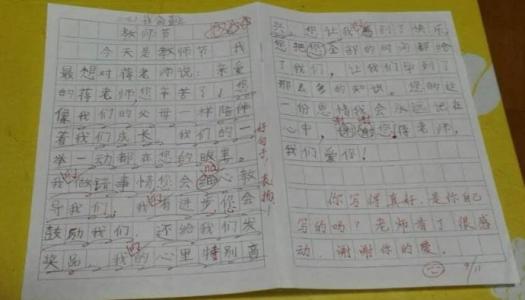 教师节
今天是教师节，我
最想对蒋老师说：亲爱
的蒋老师，您辛苦了！您
像我们的父母一样陪伴
着我们成长，我们的一
举一动都在您的眼里。
我做错事情您会细心教
导我们，我有进步您会
鼓励我们，还给我们发
奖品，我的心里特别高
好句子，表扬！
兴。您让我看到了快乐，
您把您全部的时间都给
了我们，让我们学到了
那么多的知识。您的这
一份恩情我会永远记在
心中，谢谢您蒋老师，
我们爱您！
你写得真好，是你自己
写的吗？老师看了很感
动，谢谢你的爱。
9/11